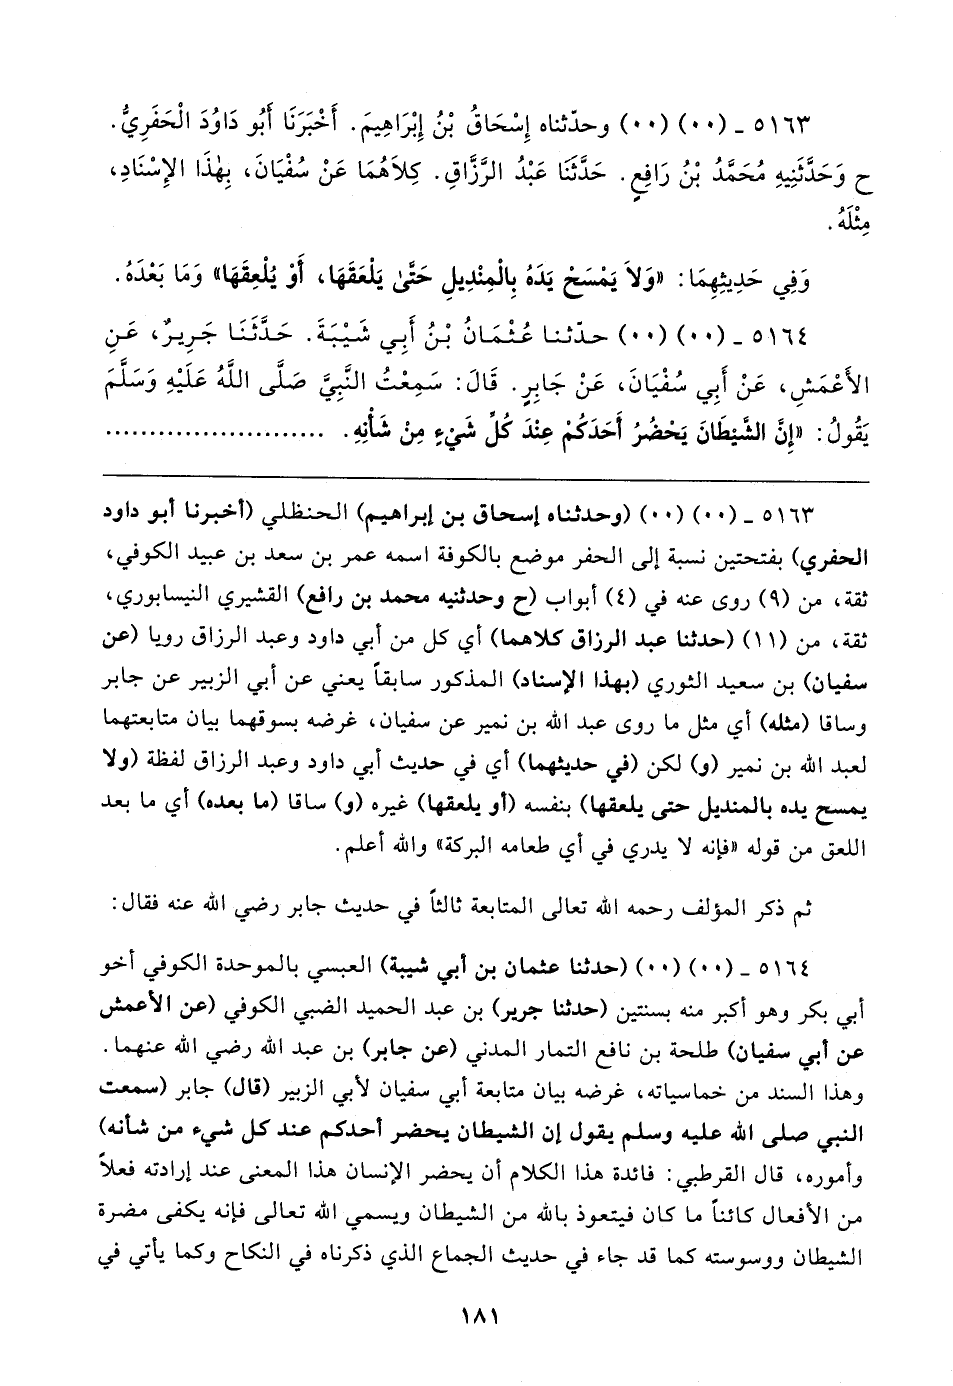 ٥١٦٣ ـ (٠٠) (٠٠) وحدّثناه إِسْحَاقُ بْنُ إِبْرَاهِيمَ. أَخْبَرَنَا أَبُو دَاوُدَ الْحَفَرِيُّ.
ح وَحَدَّثَنِيهِ مُحَمَّدُ بْنُ رَافِعٍ. حَدَّثَنَا عَبْدُ الرَّزَّاقِ. كِلاَهُمَا عَنْ سُفْيَانَ، بِهٰذَا الإِسْنَادِ،
مِثْلَهُ.
وَفِي حَدِيثِهِمَا: «وَلاَ يَمْسَحْ يَدَهُ بِالْمِنْدِيلِ حَتَّىٰ يَلْعَقَهَا، أَوْ يُلْعِقَهَا» وَمَا بَعْدَهُ.
٥١٦٤ ـ (٠٠) (٠٠) حدّثنا عُثْمَانُ بْنُ أَبِي شَيْبَةَ. حَدَّثَنَا جَرِيرٌ، عَنِ
الأَعْمَشِ، عَنْ أَبِي سُفْيَانَ، عَنْ جَابِرٍ. قَالَ: سَمِعْتُ النَّبِيَّ صَلَّى اللَّهُ عَلَيْهِ وَسَلَّمَ
يَقُولُ: «إِنَّ الشَّيْطَانَ يَحْضُرُ أَحَدَكُمْ عِنْدَ كُلِّ شَيْءٍ مِنْ شَأْنِهِ. ........................
٥١٦٣ ـ (٠٠) (٠٠) (وحدثناه إسحاق بن إبراهيم) الحنظلي (أخبرنا أبو داود
الحفري) بفتحتين نسبة إلى الحفر موضع بالكوفة اسمه عمر بن سعد بن عبيد الكوفي،
ثقة، من (٩) روى عنه في (٤) أبواب (ح وحدثنيه محمد بن رافع) القشيري النيسابوري،
ثقة، من (١١) (حدثنا عبد الرزاق كلاهما) أي كل من أبي داود وعبد الرزاق رويا (عن
سفيان) بن سعيد الثوري (بهذا الإسناد) المذكور سابقاً يعني عن أبي الزبير عن جابر
وساقا (مثله) أي مثل ما روى عبد الله بن نمير عن سفيان، غرضه بسوقهما بيان متابعتهما
لعبد الله بن نمير (و) لكن (في حديثهما) أي في حديث أبي داود وعبد الرزاق لفظة (ولا
يمسح يده بالمنديل حتى يلعقها) بنفسه (أو يلعقها) غيره (و) ساقا (ما بعده) أي ما بعد
اللعق من قوله «فإنه لا يدري في أي طعامه البركة» والله أعلم.
ثم ذكر المؤلف رحمه الله تعالى المتابعة ثالثاً في حديث جابر رضي الله عنه فقال:
٥١٦٤ ـ (٠٠) (٠٠) (حدثنا عثمان بن أبي شيبة) العبسي بالموحدة الكوفي أخو
أبي بكر وهو أكبر منه بسنتين (حدثنا جرير) بن عبد الحميد الضبي الكوفي (عن الأعمش
عن أبي سفيان) طلحة بن نافع التمار المدني (عن جابر) بن عبد الله رضي الله عنهما.
وهذا السند من خماسياته، غرضه بيان متابعة أبي سفيان لأبي الزبير (قال) جابر (سمعت
النبي صلى الله عليه وسلم يقول إن الشيطان يحضر أحدكم عند كل شيء من شأنه)
وأموره، قال القرطبي: فائدة هذا الكلام أن يحضر الإنسان هذا المعنى عند إرادته فعلاً
من الأفعال كائناً ما كان فيتعوذ بالله من الشيطان ويسمي الله تعالى فإنه يكفى مضرة
الشيطان ووسوسته كما قد جاء في حديث الجماع الذي ذكرناه في النكاح وكما يأتي في
١٨١